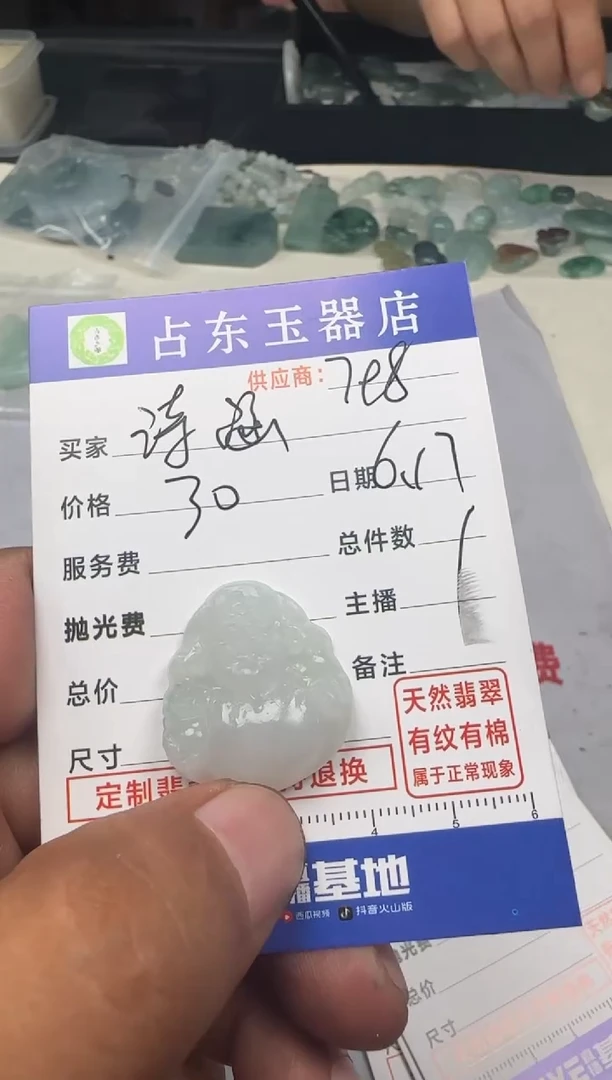 占东玉器店
供应商: 768
买家 诗涵
价格 30 日期 6.17
服务费 总件数 1
抛光费 主播
总价 备注
尺寸
天然翡翠
有纹有棉
属于正常现象
定制翡 退换
4 5 6
播基地
西瓜视频 抖音火山版
费
总价
尺寸